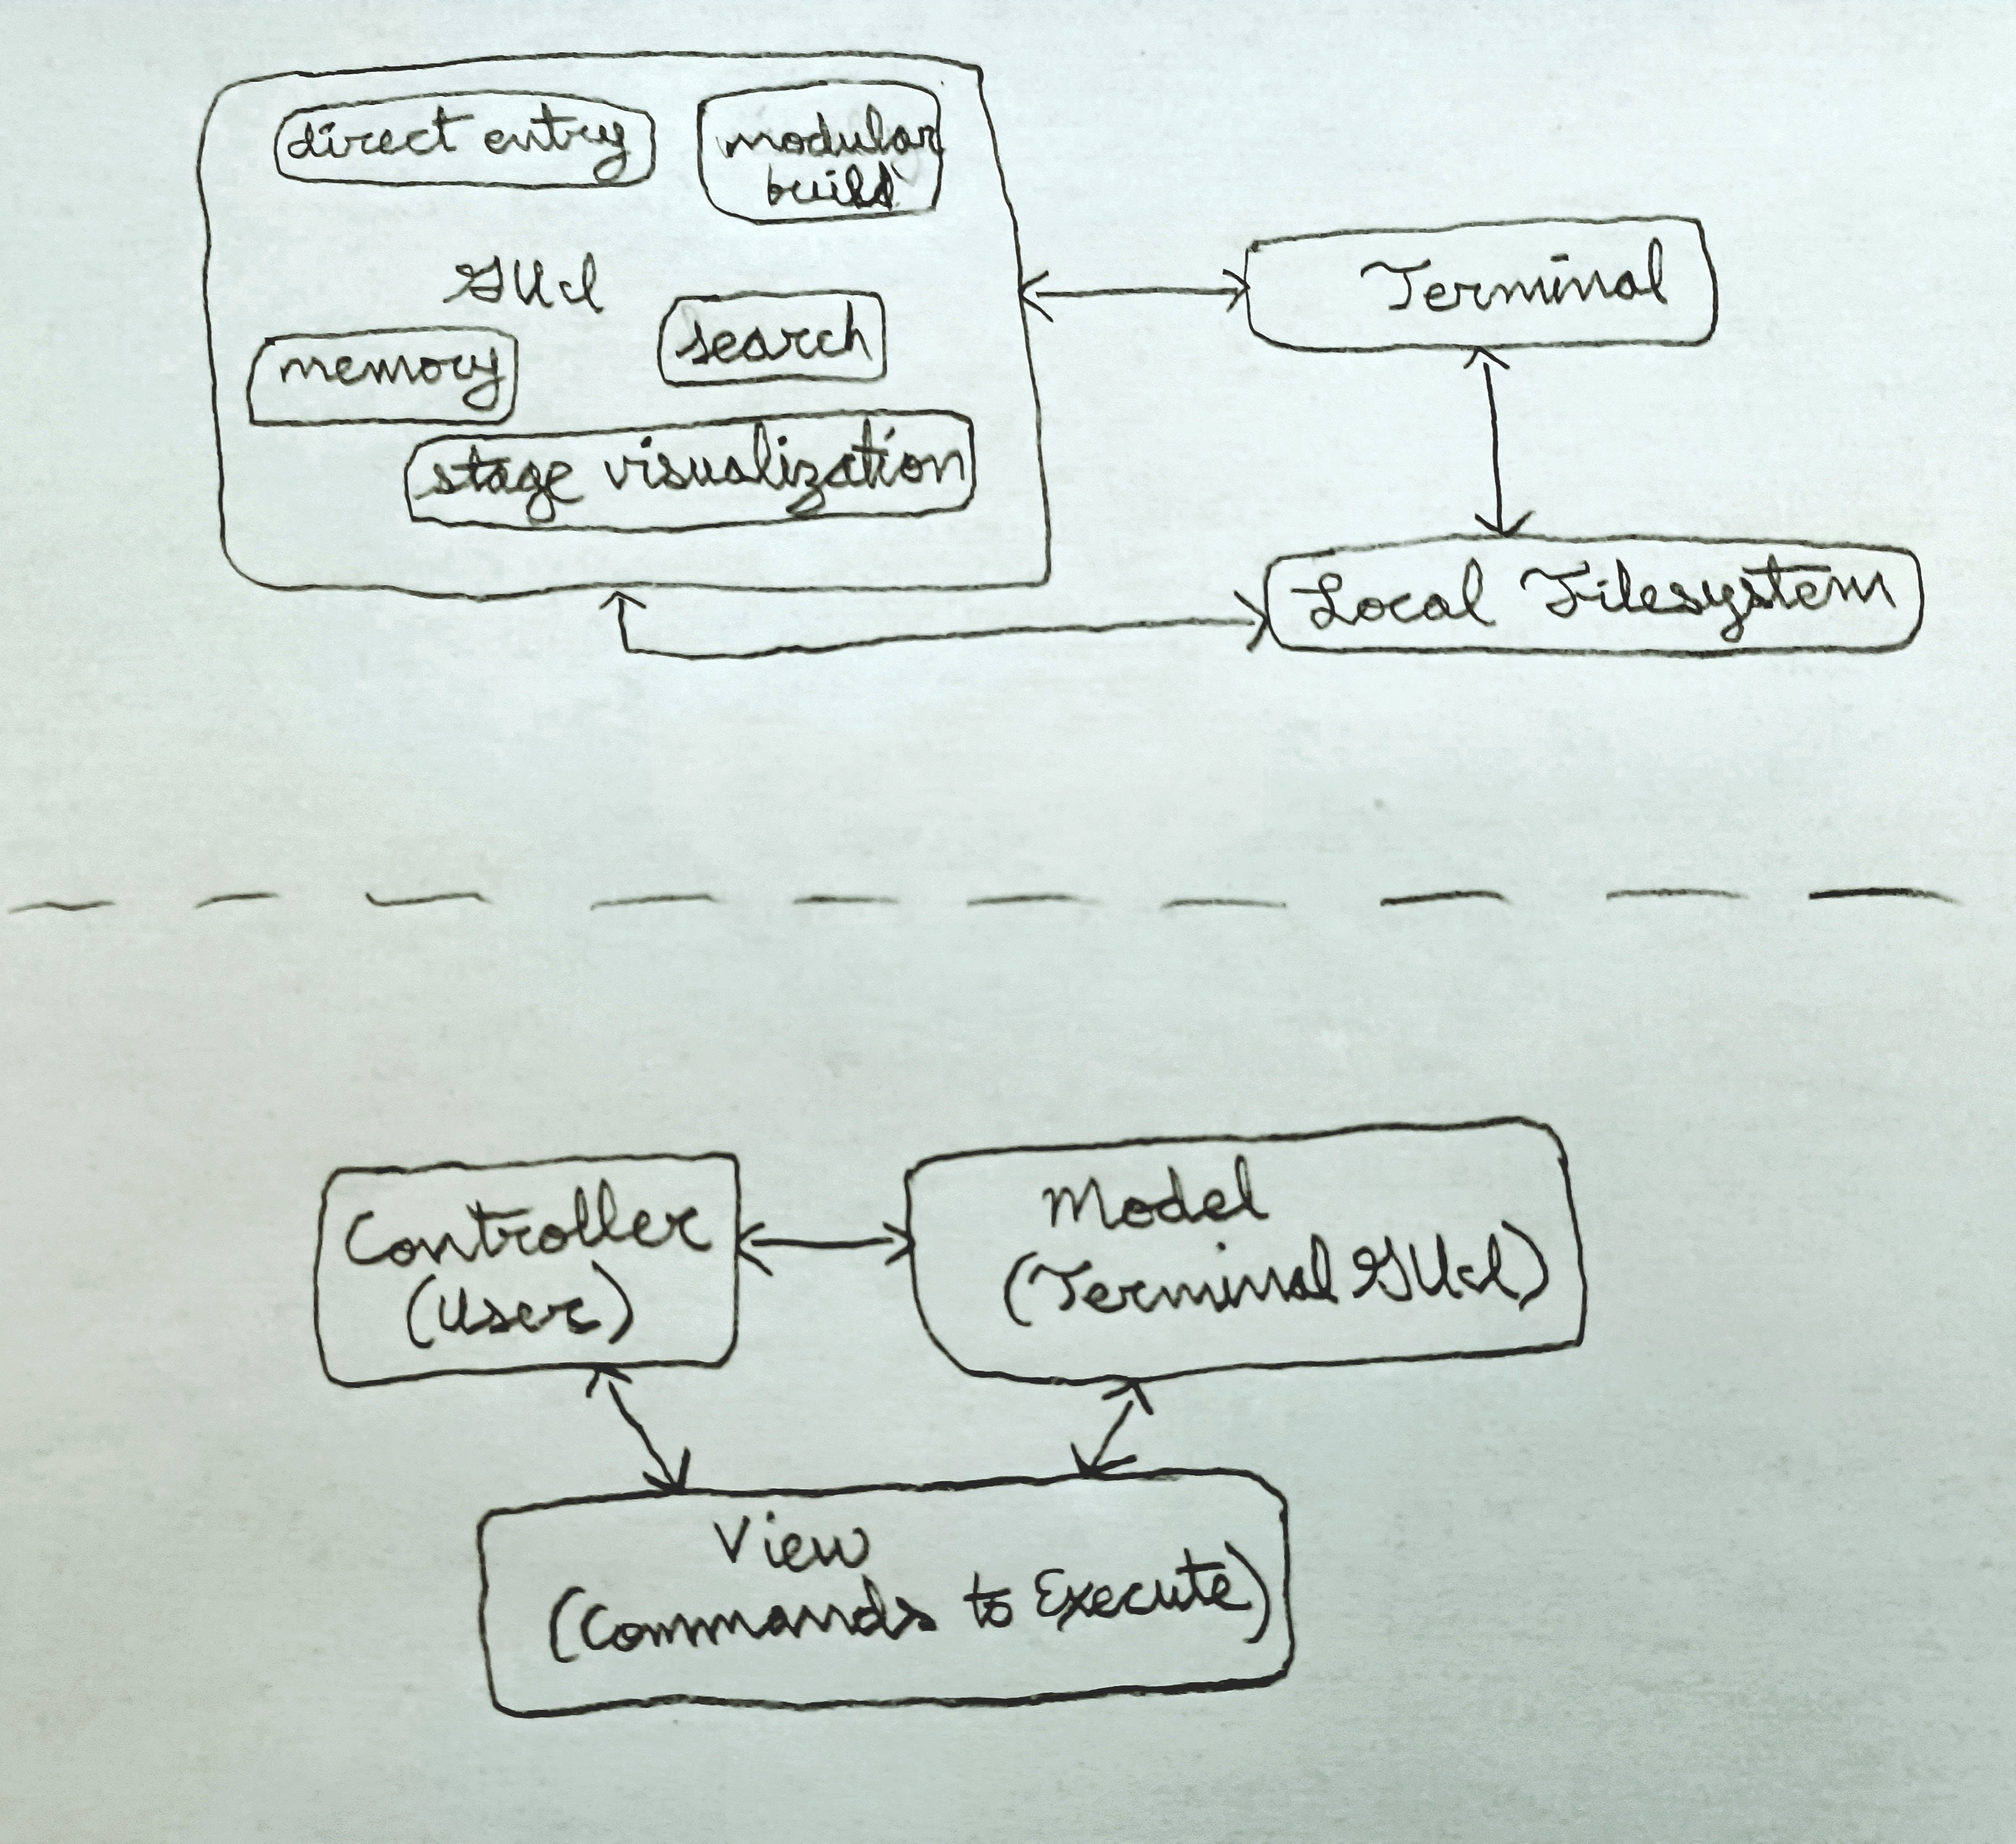 direct entry
modular
build
GUI
search
memory
stage visualization
Terminal
Local Filesystem
Controller
(User)
Model
(Terminal GUI)
View
(Commands to Execute)